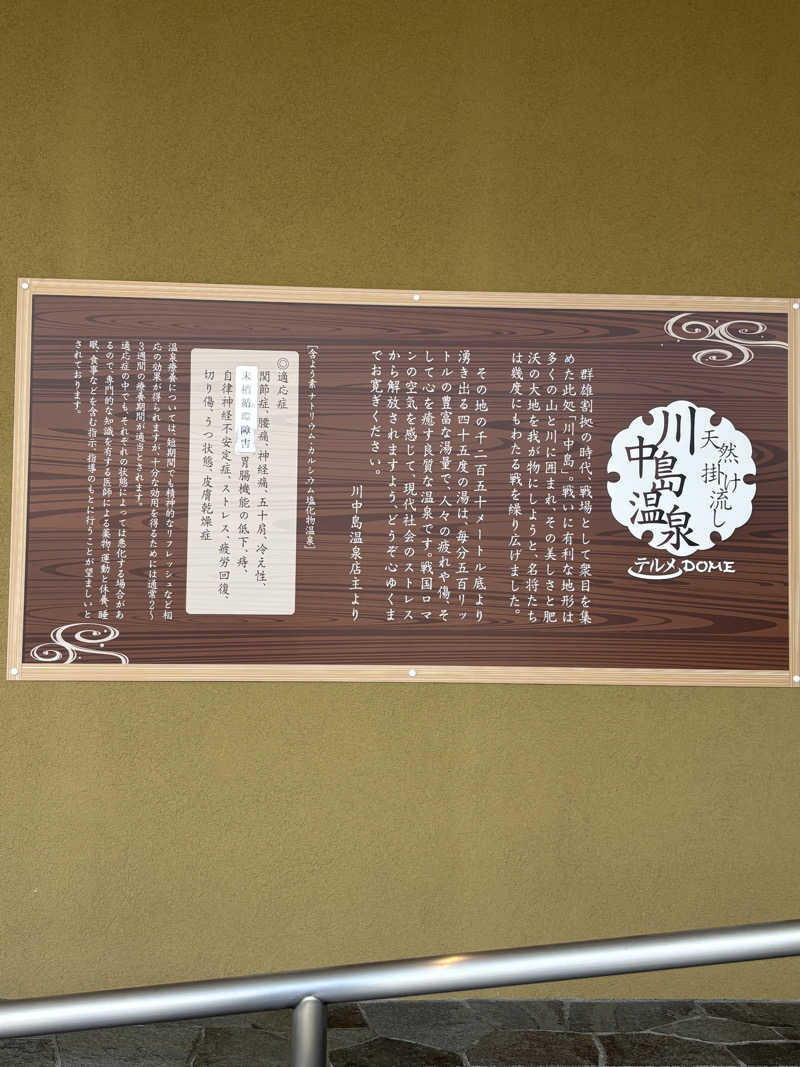 天然掛け流し
川中島温泉
テルメDOME
群雄割拠の時代、戦場として衆目を集
めた此処「川中島」。戦いに有利な地形は
多くの山と川に囲まれ、その美しさと肥
沃の大地を我が物にしようと、名将たち
は幾度にもわたる戦を繰り広げました。
その地の千二百五十メートル底より
湧き出る四十五度の湯は、毎分五百リッ
トルの豊富な湯量で、人々の疲れや傷、そ
して心を癒す良質な温泉です。戦国ロマ
ンの空気を感じて、現代社会のストレス
から解放されますよう、どうぞ心ゆくま
でお寛ぎください。
川中島温泉店主より
[含よう素 ナトリウム・カルシウム塩化物温泉]
◎適応症
関節症、腰痛、神経痛、五十肩、冷え性、
末梢循環障害、胃腸機能の低下、痔、
自律神経不安定症、ストレス、疲労回復、
切り傷、うつ状態、皮膚乾燥症
温泉療養については、短期間でも精神的なリフレッシュなど相
応の効果が得られますが、十分な効用を得るためには通常2〜
3週間の療養期間が適当とされます。
適応症の中でも、それぞれの状態によっては悪化する場合があ
るので、専門的な知識を有する医師による薬物、運動と休養、睡
眠、食事などを含む指示、指導のもとに行うことが望ましいと
されております。